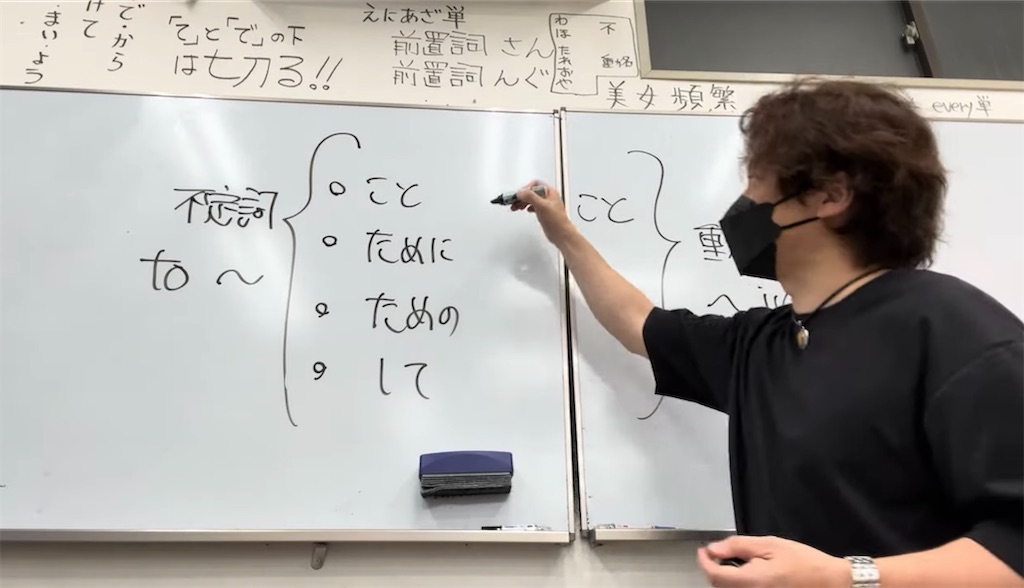 で・から
けて
・まい・よう
「て」と「で」の下
は七刀る!!
えにあざ単
前置詞 さん
前置詞 んぐ
わはたれおや
不
動名
美女頻繁
every単
不定詞
to ～
こと
ために
ための
して
こと
動
～